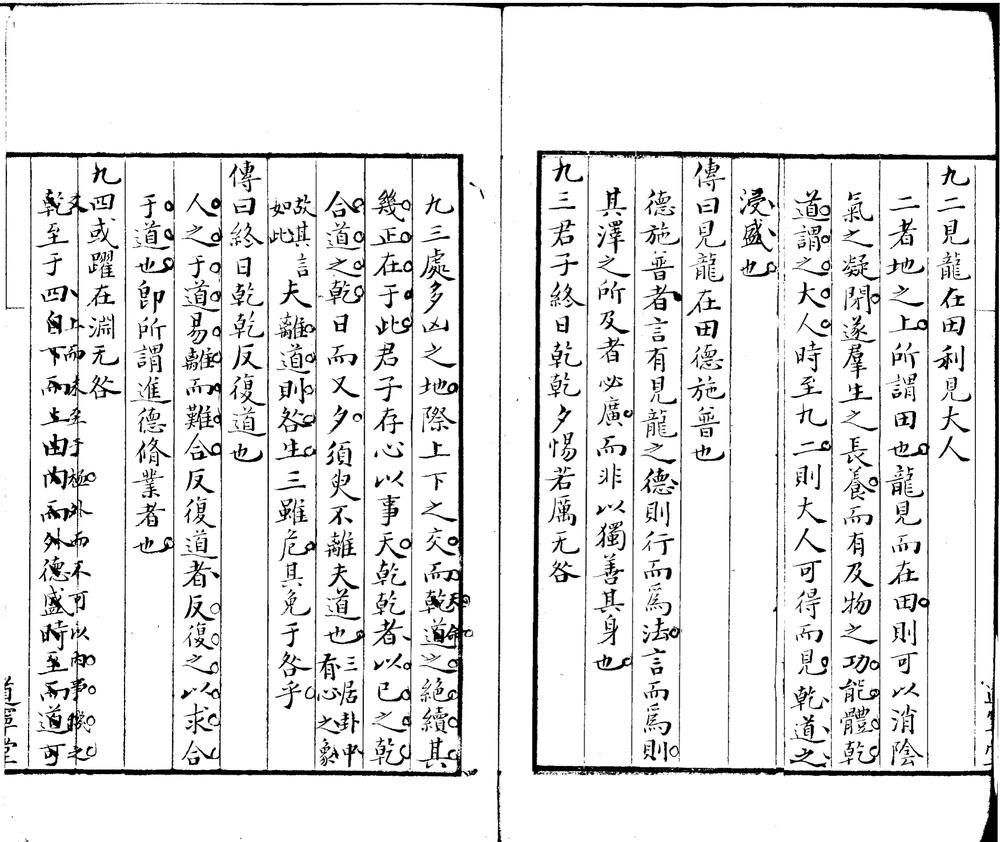 九二見龍在田利見大人
二者地之上所謂田也龍見而在田則可以消陰
氣之凝閉遂羣生之長養而有及物之功能體乾
道謂之大人時至九二則大人可得而見乾道之
浸盛也
傳曰見龍在田德施普也
德施普者言有見龍之德則行而爲法言而爲則
其澤之所及者必廣而非以獨善其身也
九三君子終日乾乾夕惕若厲无咎
九三處多凶之地際上下之交而乾道之絕續其
天命
幾正在于此君子存心以事天乾乾者以已之乾
合道之乾日而又夕須臾不離夫道也三居卦中有心之象
故其言如此夫離道則咎生三雖危其免于咎乎
傳曰終日乾乾反復道也
人之于道易離而難合反復道者反復之以求合
于道也卽所謂進德脩業者也
九四或躍在淵无咎
乾至于四自下而上由內而外德盛時至而道可
上而未至于極外而不可以內事